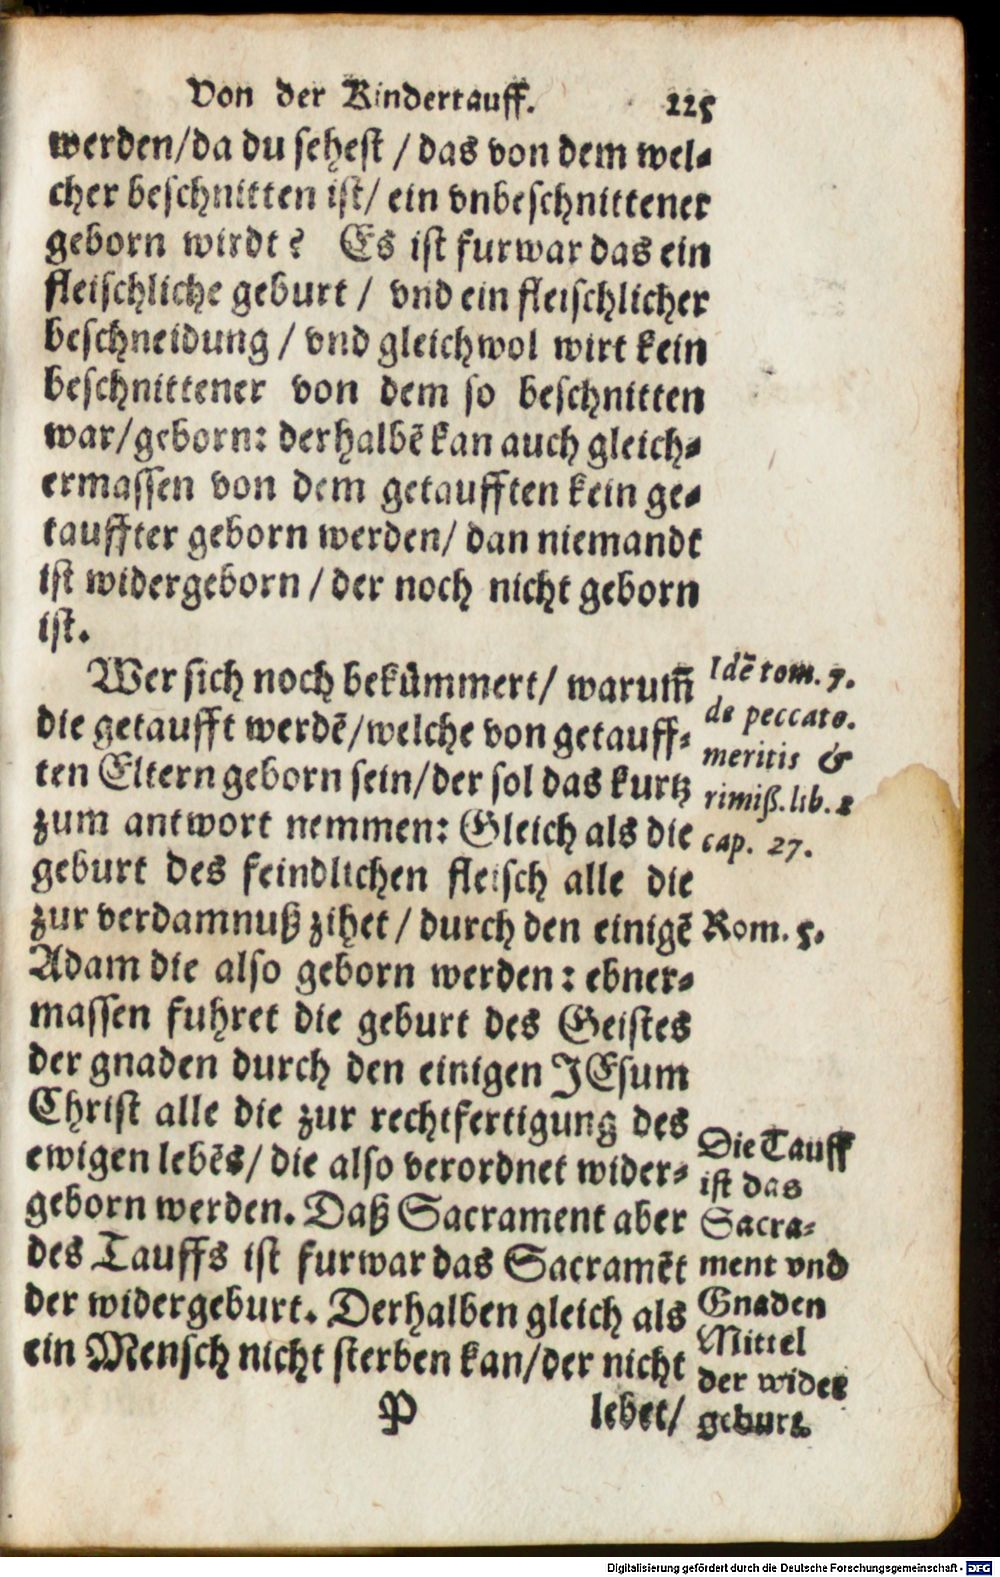 Von der Kindertauff. 225
werden/da du sehest / das von dem wel⸗
cher beschnitten ist/ ein vnbeschnittener
geborn wirdt? Es ist furwar das ein
fleischliche geburt / vnd ein fleischlicher
beschneidung / vnd gleichwol wirt kein
beschnittener von dem so beschnitten
war/geborn: derhalbẽ kan auch gleich⸗
ermassen von dem getaufften kein ge⸗
tauffter geborn werden/ dan niemandt
ist widergeborn / der noch nicht geborn
ist.
Wer sich noch bekůmmert/ warum̃
die getaufft werdẽ/welche von getauff⸗
ten Eltern geborn sein/der sol das kurtz
zum antwort nemmen: Gleich als die
geburt des feindlichen fleisch alle die
zur verdamnuß zihet / durch den einigẽ
Adam die also geborn werden: ebner⸗
massen fuhret die geburt des Geistes
der gnaden durch den einigen JEsum
Christ alle die zur rechtfertigung des
ewigen lebẽs/ die also verordnet wider⸗
geborn werden. Daß Sacrament aber
des Tauffs ist furwar das Sacramẽt
der widergeburt. Derhalben gleich als
ein Mensch nicht sterben kan/der nicht
P lebet/
Idẽ tom. 7.
de peccato.
meritis &
rimiß. lib. 2
cap. 27.
Rom. 5.
Die Tauff
ist das
Sacra⸗
ment vnd
Gnaden
Mittel
der wider
geburt.
Digitalisierung gefördert durch die Deutsche Forschungsgemeinschaft - DFG